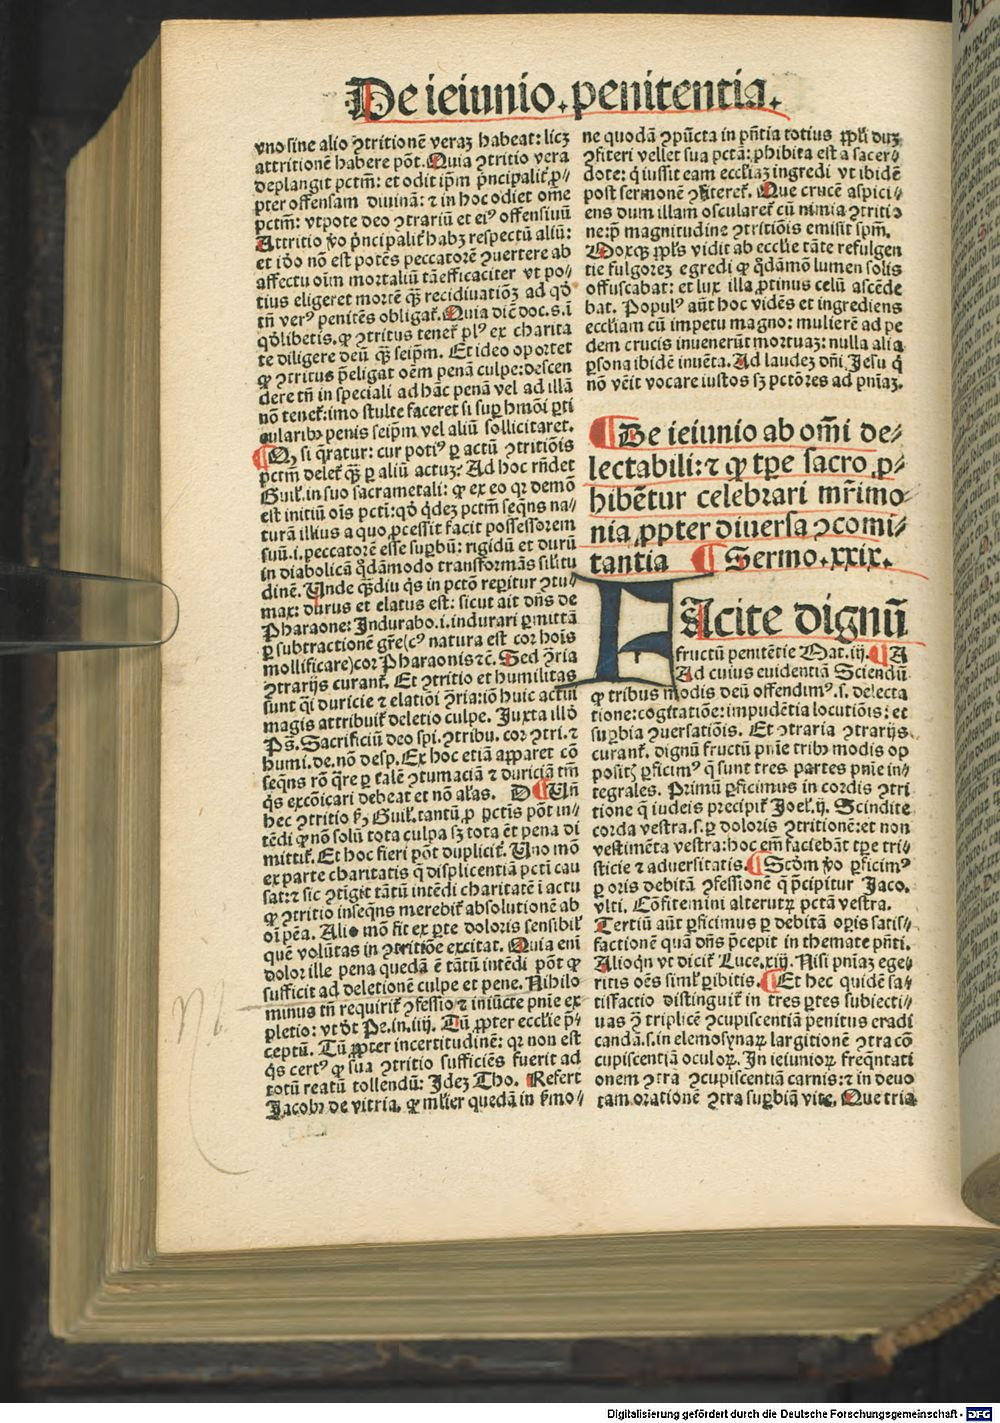 De ieiunio. penitentia.
vno sine alio ꝯtritionē veraꝫ habeat: licꝫ
attritionē habere pōt. Quia ꝯtritio vera
deplangit pctm̄: et odit ip̄m p̄ncipalit̄ ꝓ-
pter offensam diuinā: ⁊ in hoc odiet om̄e
pctm̄: vtpote deo ꝯtrariū et eiꝰ offensiuū
Attritio v̄o p̄ncipalit̄ habꝫ respectū aliū:
et iō nō est potēs peccatorē ꝯuertere ab
affectu oīm mortaliū tā efficaciter vt po-
tius eligeret mortē qꝫ̄ recidiuatiōꝫ ad qō
tn̄ verꝰ penitēs obligat̄. Quia dic̄ doc. s. i
qōlibetis. ꝙ ꝯtritus tenet̄ plꝰ ex charita
te diligere deū qꝫ̄ seip̄m. Et ideo oportet
ꝙ ꝯtritus p̄eligat oēm penā culpe: descen
dere tn̄ in speciali ad hāc penā vel ad illā
nō tenet̄: imo stulte faceret si suꝑ hmōi ꝑti
cularibꝫ penis seip̄m vel aliū sollicitaret.
si q̄ratur: cur potiꝰ ꝑ actū ꝯtritiōis
pctm̄ delet̄ qꝫ̄ ꝑ aliū actuꝫ: Ad hoc rn̄det
Guil̄. in suo sacramētali: ꝙ ex eo qꝛ demō
est initiū oīs pcti: qō qdeꝫ pctm̄ seqn̄s na-
turā illius a quo ꝓcessit facit possessorem
suū. i. peccatorē esse suꝑbū: rigidū et durū
in diabolicā qdāmodo transformās silitu
dinē. Unde qꝫ̄diu qs in pctō reperitur ꝯtu-
max: durus et elatus est: sicut ait dn̄s de
Pharaone: Indurabo. i. indurari ꝑmittā
ꝑ subtractionē gr̄e(cꝰ natura est cor hoīs
mollificare)cor Pharaonis ⁊c̄. Sed ꝯ̄ria
ꝯtrarijs curant̄. Et ꝯtritio et humilitas
sunt q̄i duricie ⁊ elatiōi ꝯ̄ria: iō huic actui
magis attribuit̄ deletio culpe. Juxta illō
Ps̄. Sacrificiū deo sp̄i. ꝯtribu. cor ꝯtri. ⁊
humi. de. nō desp. Ex hoc etiā apparet cō
seqn̄s rō q̄re ꝑ talē ꝯtumaciā ⁊ duriciā tm̄
qs excōicari debeat et nō al̄as. D Un̄
hec ꝯtritio ẜm Guil̄. tantū ꝓ pctis pōt in-
tēdi ꝙ nō solū tota culpa sꝫ tota ēt pena di
mittit̄. Et hoc fieri pōt duplicit̄. Uno mō
ex parte charitatis q̄ displicentiā pcti cau
sat: ⁊ sic ꝯtīgit tātū intēdi charitatē i actu
ꝙ ꝯtritio inseqn̄s merebit̄ absolutionē ab
oī pēa. Alio mō fit ex ꝑte doloris sensibil̄
quē volūtas in ꝯtritiōe excitat. Quia eni
dolor ille pena quedā ē tātū intēdi pōt ꝙ
sufficit ad deletionē culpe et pene. Nihilo
minus tn̄ requirit̄ ꝯfessio ⁊ iniūcte pn̄ie ex
pletio: vt dt̄ Pe. in. iiij. Tū ꝓpter ecclīe p̄-
ceptū. Tū ꝓpter incertitudinē: qꝛ non est
qs certꝰ ꝙ sua ꝯtritio sufficiēs fuerit ad
totū reatū tollendū: Idē Tho. Refert
Jacobꝰ de vitria. ꝙ ml̄ier quedā in ẜmo-
ne quodā ꝯpūcta in pn̄tia totius ppl̄i duꝫ
ꝯfiteri vellet sua pctā: ꝓhibita est a sacer-
dote: q̄ iussit eam eccl̄iaꝫ ingredi vt ibidē
post sermonē ꝯfiteret̄. Que crucē aspici-
ens dum illam oscularet̄ cū nimia ꝯtritio
ne: p̄ magnitudine ꝯtritiōis emisit sp̄m.
Moxqꝫ ppl̄s vidit ab eccl̄ie tāte refulgen
tie fulgoreꝫ egredi ꝙ qdāmō lumen solis
offuscabat: et lux illa ꝓtinus celū ascēde
bat. Populꝰ aūt hoc vidēs et ingrediens
eccl̄iam cū impetu magno: mulierē ad pe
dem crucis inuenerūt mortuaꝫ: nulla alia
ꝑsona ibidē inuēta. Ad laudeꝫ dn̄i Jesu q̄
nō vēit vocare iustos sꝫ pctōres ad pn̄iaꝫ.
De ieiunio ab om̄i de-
lectabili: ⁊ ꝙ tꝑe sacro ꝓ-
hibētur celebrari mr̄imo-
nia ꝓpter diuersa ꝯcomi-
tantia Sermo. xxix.
FAcite dignū
fructū penitētie Mat. iij. A
Ad cuius euidentiā Sciendū
ꝙ tribus modis deū offendimꝰ. s. delecta
tione: cogitatiōe: impudētia locutiōis: et
suꝑbia ꝯuersatiōis. Et ꝯtraria ꝯtrarijs
curant̄. dignū fructū pn̄ie tribꝰ modis op
positꝭ ꝑficimꝰ q̄ sunt tres partes pn̄ie in-
tegrales. Primū ꝑficimus in cordis ꝯtri
tione q̄ iudeis precipit̄ Joel̄. ij. Scindite
corda vestra. s. ꝑ doloris ꝯtritionē: et non
vestimēta vestra: hoc em̄ faciebāt tꝑe tri-
sticie ⁊ aduersitatis. Scdm̄ v̄o ꝑficimꝰ
ꝑ oris debitā ꝯfessionē q̄ p̄cipitur Jaco.
vlti. Cōfitemini alterutrꝫ pctā vestra.
Tertiū aūt ꝑficimus ꝑ debitā oꝑis satis-
factionē quā dn̄s p̄cepit in themate pn̄ti.
Alioqn̄ vt dicit̄ Luce. xiij. Nisi pn̄iaꝫ ege-
ritis oēs siml̄ ꝑibitis. Et hec quidē sa-
tisfactio distinguit̄ in tres ꝑtes subiecti-
uas ꝯ̄ triplicē ꝯcupiscentiā penitus eradi
candā. s. in elemosynaꝝ largitionē ꝯtra cō
cupiscentiā oculoꝝ. In ieiunioꝝ freqn̄tati
onem ꝯtra ꝯcupiscentiā carnis: ⁊ in deuo
tam orationē ꝯtra suꝑbiā vite. Que tria
Nb.
Digitalisierung gefördert durch die Deutsche Forschungsgemeinschaft - DFG